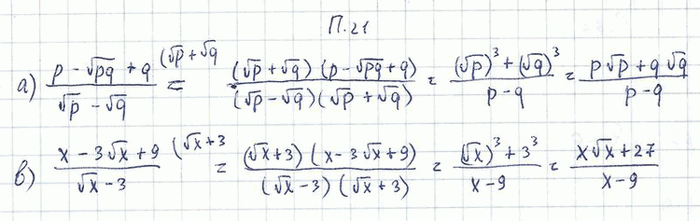 П. 21
а) (p - √pq + q)/(√p - √q) (√p + √q = ((√p + √q)(p - √pq + q))/((√p - √q)(√p + √q)) = ((√p)³ + (√q)³)/(p - q) = (p√p + q√q)/(p - q)
в) (x - 3√x + 9)/(√x - 3) (√x + 3 = ((√x + 3)(x - 3√x + 9))/((√x - 3)(√x + 3)) = ((√x)³ + 3³)/(x - 9) = (x√x + 27)/(x - 9)